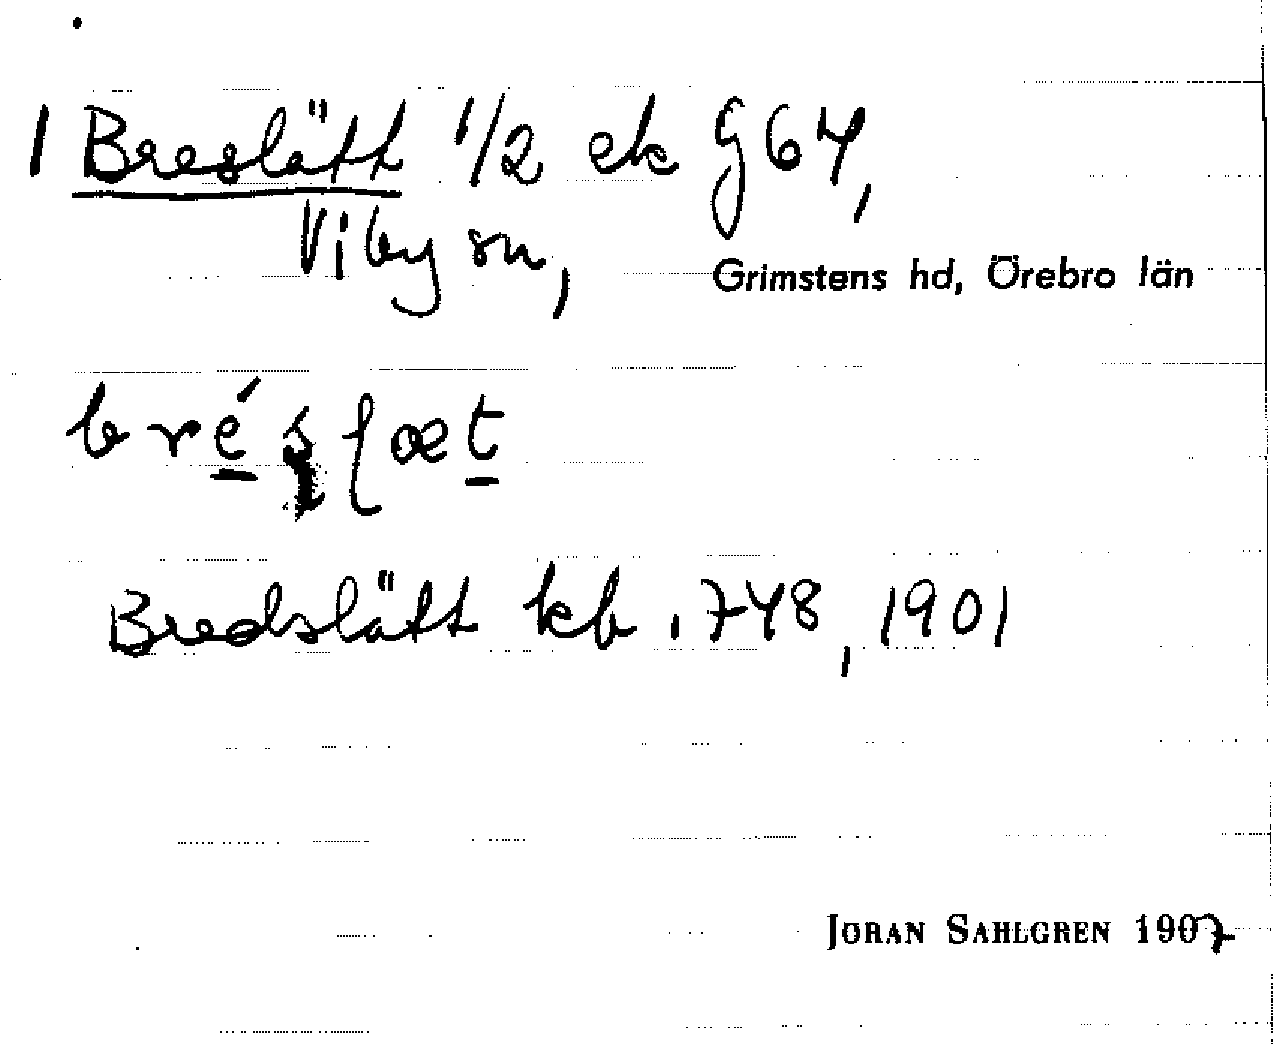 1 Breslätt 1/2 ek G64,
Viby sn, Grimstens hd, Örebro län
brésʃæt
Bredslätt kb. 748, 1901
JÖRAN SAHLGREN 1907